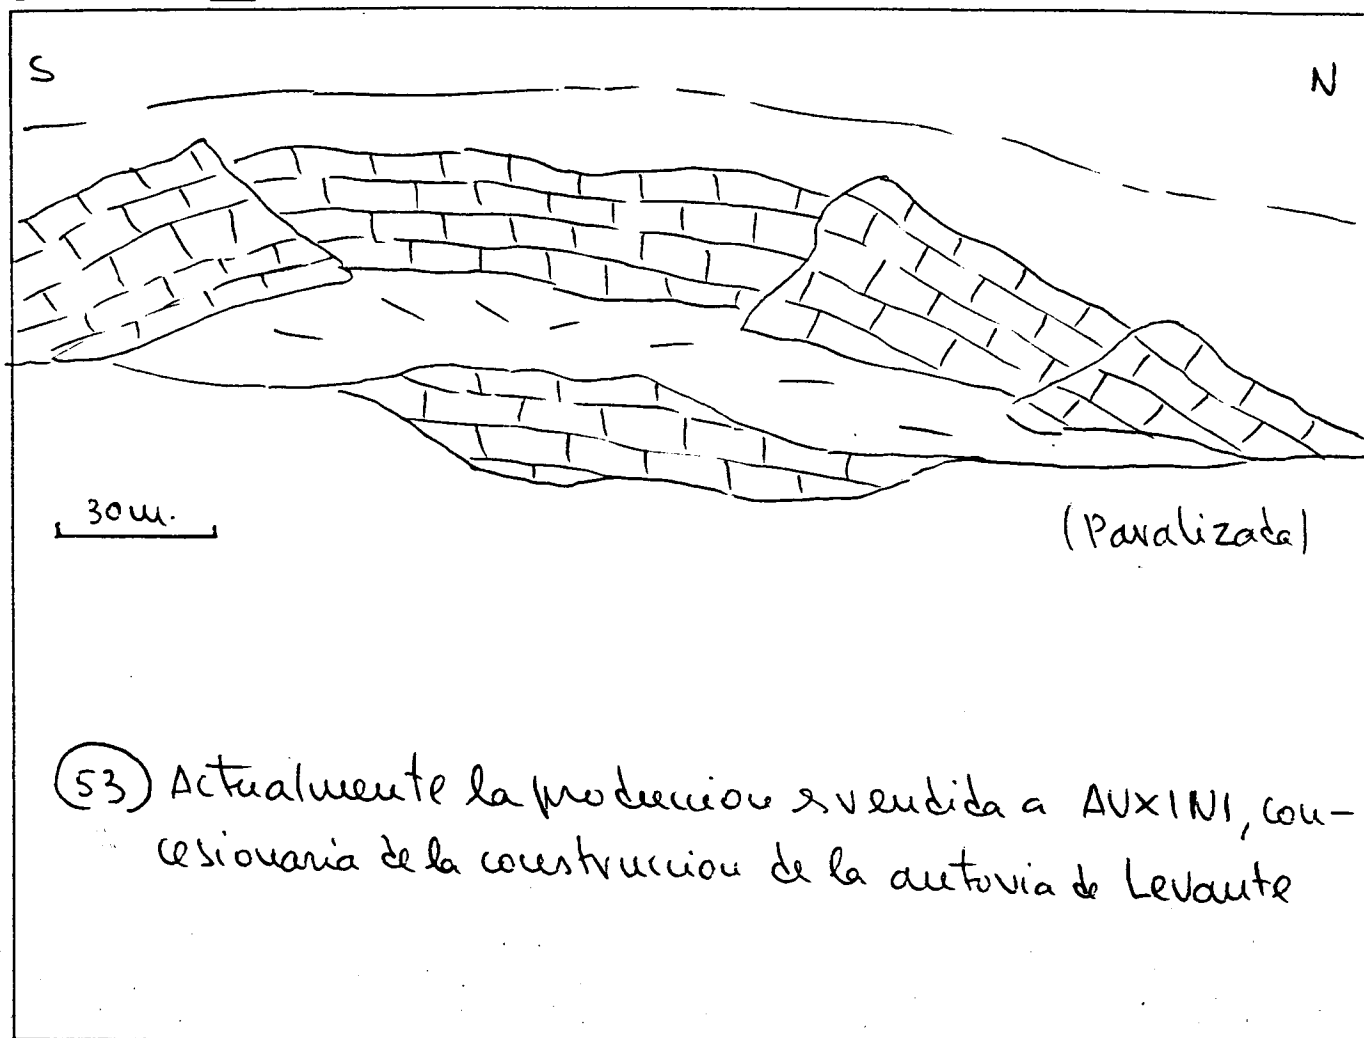 S
N
30 m.
(Paralizada)
53) Actualmente la produccion es vendida a AUXINI, con-
cesionaria de la construccion de la autovia de Levante